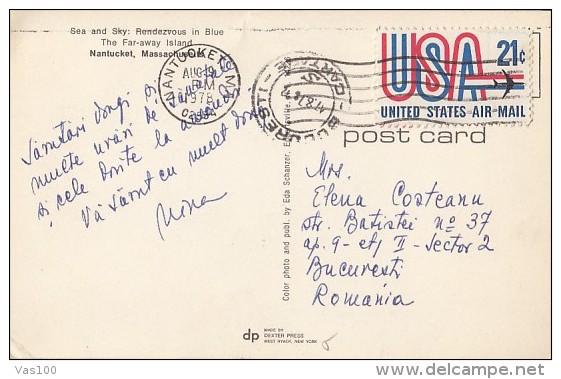 Sea and Sky: Rendezvous in Blue
The Far-away Island
Nantucket, Massachusetts
NANTUCKET, MA
AUG
PM
1978
USA 21c
UNITED STATES AIR-MAIL
BUCURESTI
post card
dragi și
multe urări de sănătate
și cele dorite la
Vă sărut cu mult dor
Nina
Color photo and publ. by Eda Schanzer,
Mrs.
Elena Costeanu
str. Batistei nº 37
ap. 9 - etj II - sector 2
București
Romania
dp
MADE BY
DEXTER PRESS
WEST NYACK, NEW YORK
Vas100
www.delcampe.net